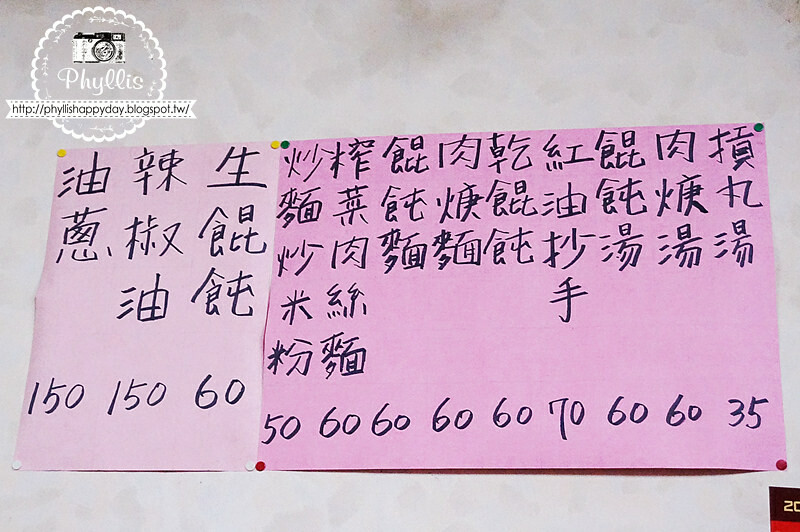 Phyllis
http://phyllishappyday.blogspot.tw/
摃丸湯 35
肉焿湯 60
餛飩湯 60
紅油抄手 70
乾餛飩 60
肉焿麵 60
餛飩麵 60
榨菜肉絲麵 60
炒麵炒米粉 50
生餛飩 60
辣椒油 150
油蔥 150
20